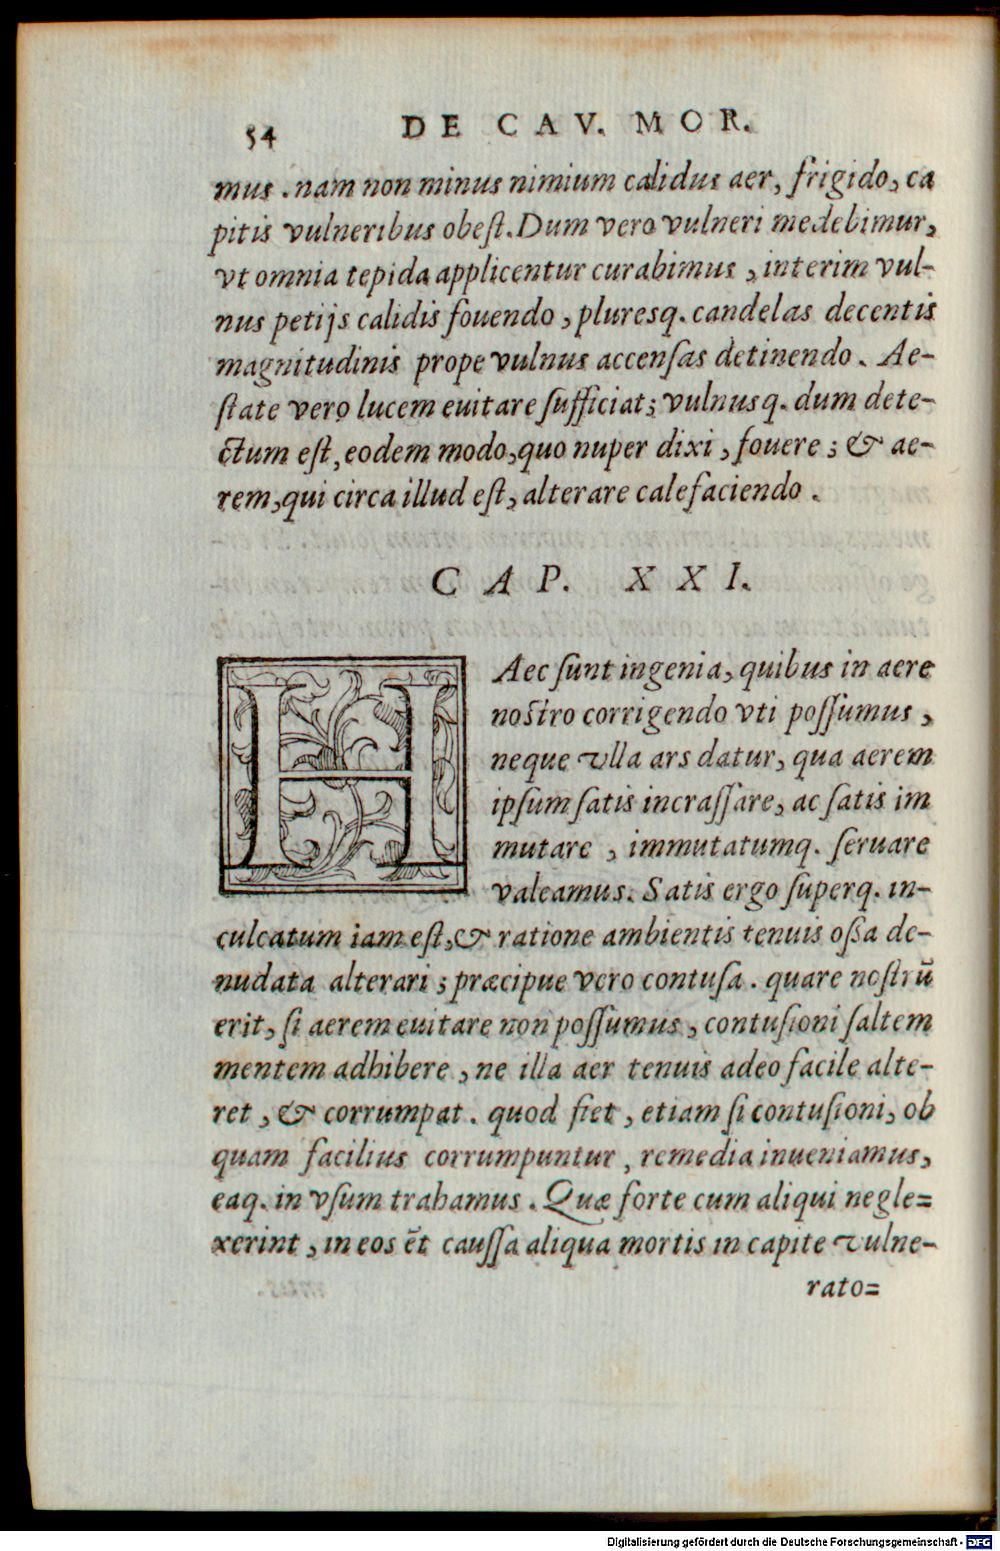 54 DE CAV. MOR.
mus. nam non minus nimium calidus aer, frigido, ca
pitis vulneribus obeſt. Dum vero vulneri medebimur,
vt omnia tepida applicentur curabimus, interim vul-
nus petijs calidis fouendo, pluresq. candelas decentis
magnitudinis prope vulnus accenſas detinendo. Ae-
ſtate vero lucem euitare ſufficiat; vulnusq. dum dete-
ctum eſt, eodem modo, quo nuper dixi, fouere; & ae-
rem, qui circa illud eſt, alterare calefaciendo.
CAP. XXI.
HAec ſunt ingenia, quibus in aere
noſtro corrigendo vti poſſumus,
neque vlla ars datur, qua aerem
ipſum ſatis incraſſare, ac ſatis im
mutare, immutatumq. ſeruare
valeamus. Satis ergo ſuperq. in-
culcatum iam eſt, & ratione ambientis tenuis oſſa de-
nudata alterari; præcipue vero contuſa. quare noſtrū
erit, ſi aerem euitare non poſſumus, contuſioni ſaltem
mentem adhibere, ne illa aer tenuis adeo facile alte-
ret, & corrumpat. quod fiet, etiam ſi contuſioni, ob
quam facilius corrumpuntur, remedia inueniamus,
eaq. in vſum trahamus. Quæ forte cum aliqui negle=
xerint, in eos ēt cauſſa aliqua mortis in capite vulne-
rato=
Digitalisierung gefördert durch die Deutsche Forschungsgemeinschaft - DFG